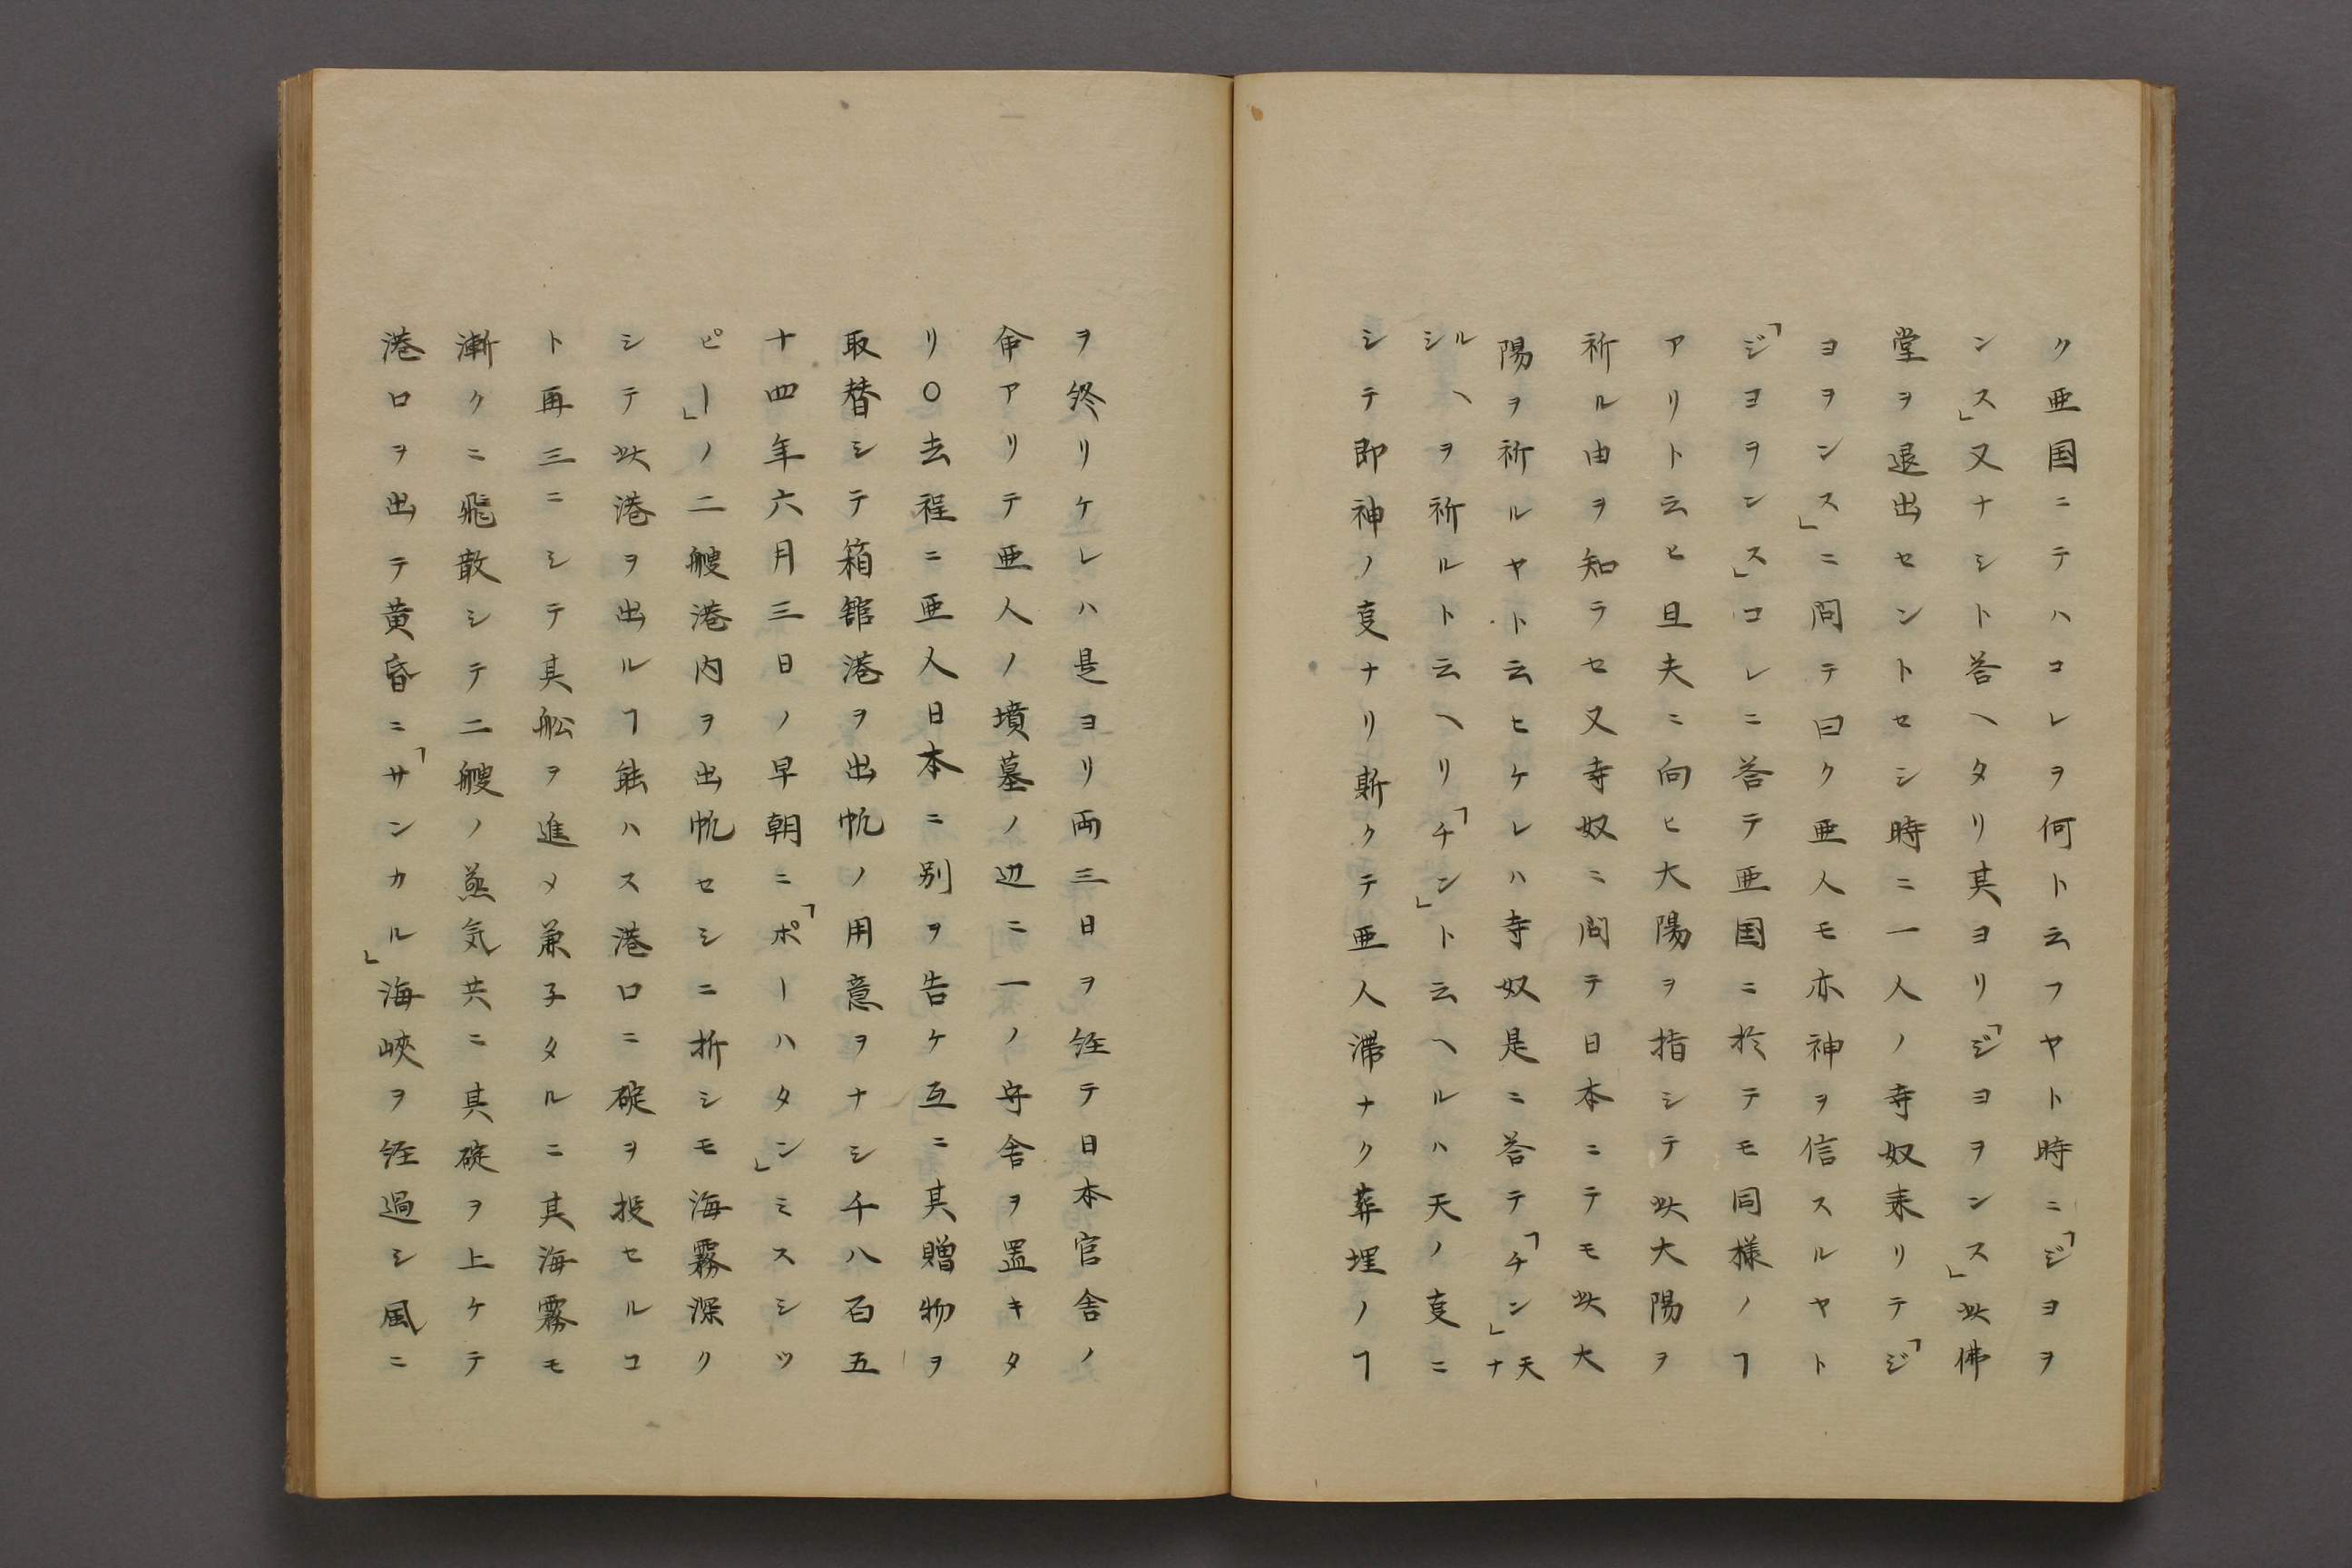 ク亜国ニテハコレヲ何ト云フヤト時ニ「ジヨヲ
ンス」又ナシト答ヘタリ其ヨリ「ジヨヲンス」此佛
堂ヲ退出セントセシ時ニ一人ノ寺奴来リテ「ジ
ヨヲンス」ニ問テ曰ク亜人モ亦神ヲ信スルヤト
「ジヨヲンス」コレニ荅テ亜国ニ於テモ同様ノヿ
アリト云ヒ且夫ニ向ヒ大陽ヲ指シテ此大陽ヲ
祈ル由ヲ知ラセ又寺奴ニ問テ日本ニテモ此大
陽ヲ祈ルヤト云ヒケレハ寺奴是ニ荅テ「チン」天ナ
ルシヘヲ祈ルト云ヘリ「チン」ト云ヘルハ天ノ㕝ニ
シテ即神ノ㕝ナリ斯クテ亜人滞ナク葬埋ノヿ
ヲ終リケレハ是ヨリ両三日ヲ経テ日本官舎ノ
命アリテ亜人ノ墳墓ノ辺ニ一ノ守舎ヲ置キタ
リ〇去程ニ亜人日本ニ別ヲ告ケ互ニ其贈物ヲ
取替シテ箱館港ヲ出帆ノ用意ヲナシ千八百五
十四年六月三日ノ早朝ニ「ポーハタン」ミスシツ
ピー」ノ二艘港内ヲ出帆セシニ折シモ海霧深ク
シテ此港ヲ出ルヿ能ハス港口ニ碇ヲ投セルコ
ト再三ニシテ其舩ヲ進メ兼子タルニ其海霧モ
漸クニ飛散シテ二艘ノ蒸気共ニ其碇ヲ上ケテ
港口ヲ出テ黄昏ニ「サンカル」海峡ヲ経過シ風ニ